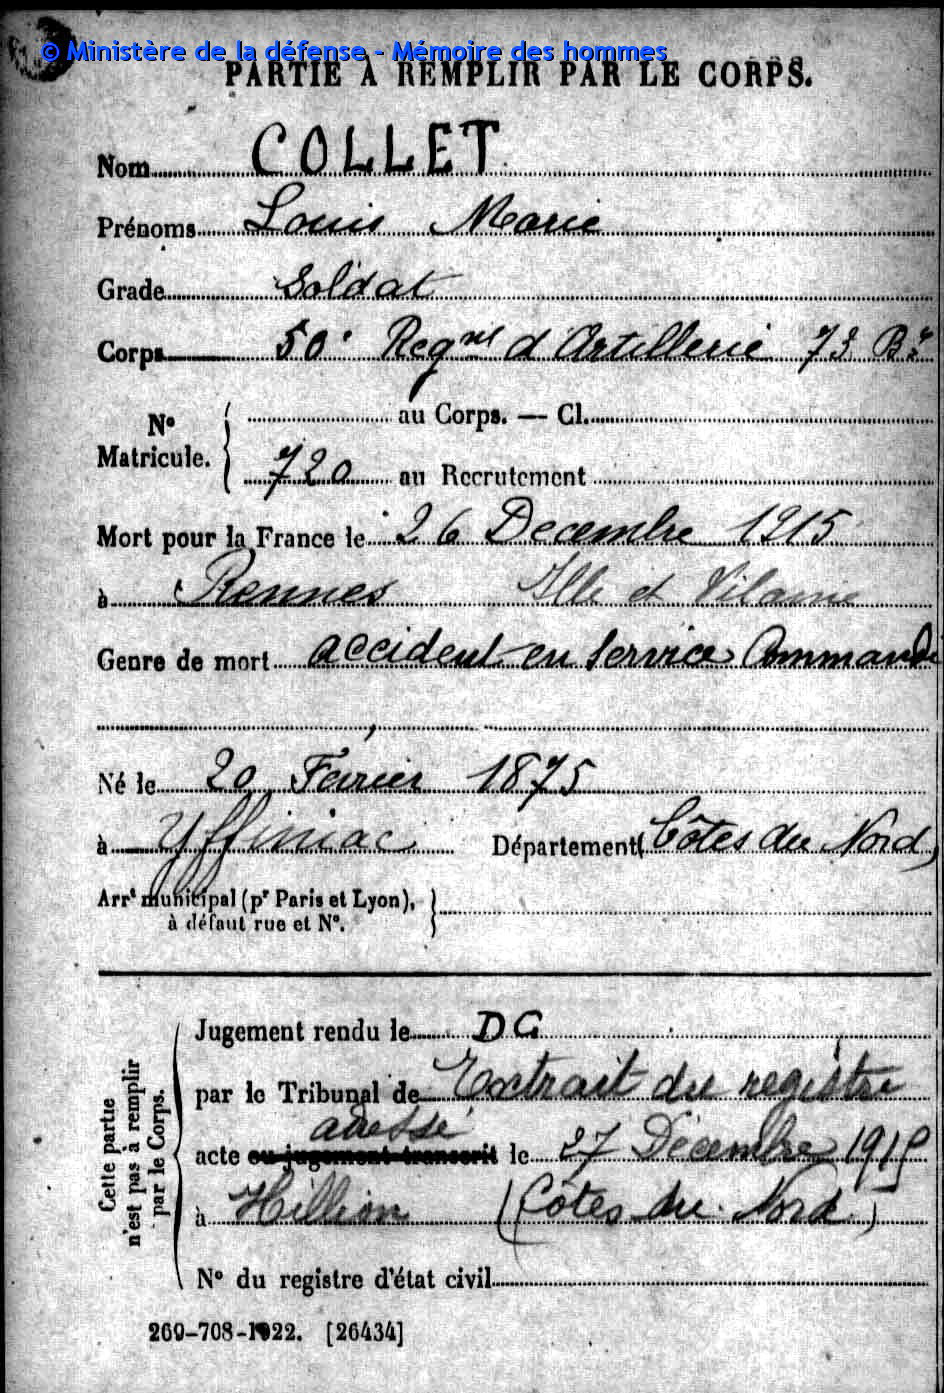 © Ministère de la défense - Mémoire des hommes
PARTIE À REMPLIR PAR LE CORPS.
Nom COLLET
Prénoms Louis Marie
Grade Soldat
Corps 50e Regnt d'Artillerie 73 Bie
No Matricule. { au Corps. — Cl.
720 au Recrutement
Mort pour la France le 26 Decembre 1915
à Rennes Ille et Vilaine
Genre de mort accident en service Commandé
Né le 20 Fevrier 1875
à Yffiniac Département (Côtes du Nord)
Arrt municipal (pr Paris et Lyon), }
à défaut rue et No.
Cette partie
n'est pas à remplir
par le Corps.
Jugement rendu le DC
par le Tribunal de Extrait du registre
adressé
acte ou jugement transcrit le 27 Décembre 1915
à Hillion (Côtes du Nord)
No du registre d'état civil
269-708-1922. [26434]